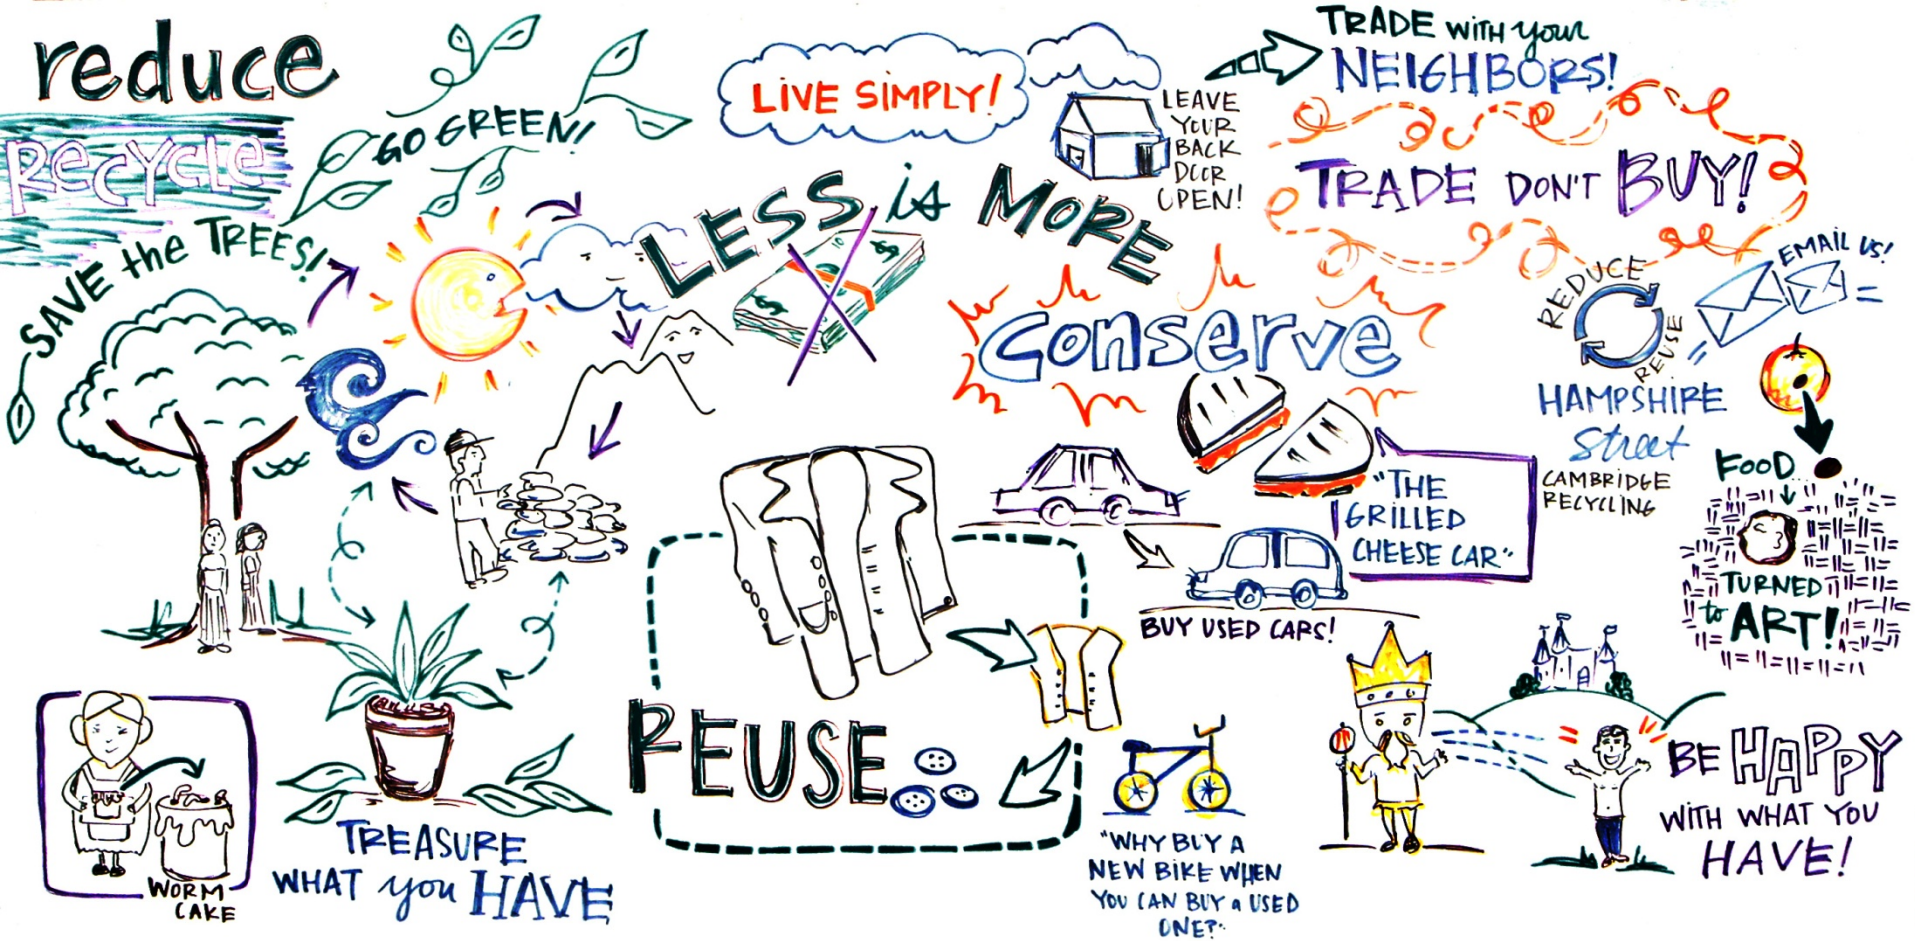 reduce
RECYCLE
GO GREEN!
SAVE the TREES!
LIVE SIMPLY!
LEAVE
YOUR
BACK
DOOR
OPEN!
TRADE WITH your
NEIGHBORS!
TRADE DON'T BUY!
LESS is MORE
$
$
CONSERVE
REDUCE
REUSE
EMAIL US!
HAMPSHIRE
Street
CAMBRIDGE
RECYCLING
"THE
GRILLED
CHEESE CAR"
BUY USED CARS!
FOOD
TURNED
to ART!
REUSE
WORM
CAKE
TREASURE
WHAT you HAVE
"WHY BUY A
NEW BIKE WHEN
YOU CAN BUY a USED
ONE?"
BE HAPPY
WITH WHAT YOU
HAVE!